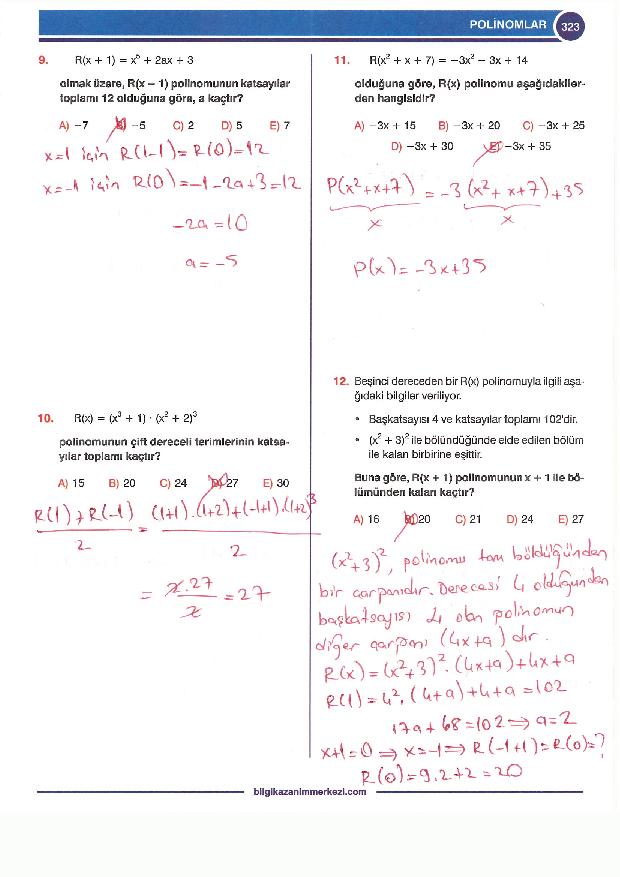 POLİNOMLAR 323
9. R(x + 1) = x⁵ + 2ax + 3
olmak üzere, R(x − 1) polinomunun katsayılar
toplamı 12 olduğuna göre, a kaçtır?
A) −7 B) −5 C) 2 D) 5 E) 7
x=1 için R(1-1)=R(0)=12
x=-1 için R(0)=-1-2a+3=12
-2a=10
a=-5
10. R(x) = (x³ + 1) · (x² + 2)³
polinomunun çift dereceli terimlerinin katsa-
yılar toplamı kaçtır?
A) 15 B) 20 C) 24 D) 27 E) 30
R(1)+R(-1) = (1+1).(1+2)+(-1+1).(1+2)³
2 2
= 2.27 = 27
2
11. R(x² + x + 7) = −3x² − 3x + 14
olduğuna göre, R(x) polinomu aşağıdakiler-
den hangisidir?
A) −3x + 15 B) −3x + 20 C) −3x + 25
D) −3x + 30 E) −3x + 35
P(x²+x+7) = -3(x²+x+7)+35
x x
P(x)=-3x+35
12. Beşinci dereceden bir R(x) polinomuyla ilgili aşa-
ğıdaki bilgiler veriliyor.
• Başkatsayısı 4 ve katsayılar toplamı 102'dir.
• (x² + 3)² ile bölündüğünde elde edilen bölüm
ile kalan birbirine eşittir.
Buna göre, R(x + 1) polinomunun x + 1 ile bö-
lümünden kalan kaçtır?
A) 16 B) 20 C) 21 D) 24 E) 27
(x²+3)², polinomu tam böldüğünden
bir çarpanıdır. Derecesi 4 olduğundan
başkatsayısı 4 olan polinomun
diğer çarpanı (4x+a) dır.
R(x)=(x²+3)².(4x+a)+4x+a
R(1)=4².(4+a)+4+a=102
17a+68=102⇒a=2
x+1=0⇒x=-1⇒R(-1+1)=R(0)=?
R(0)=9.2+2=20
bilgikazanimmerkezi.com